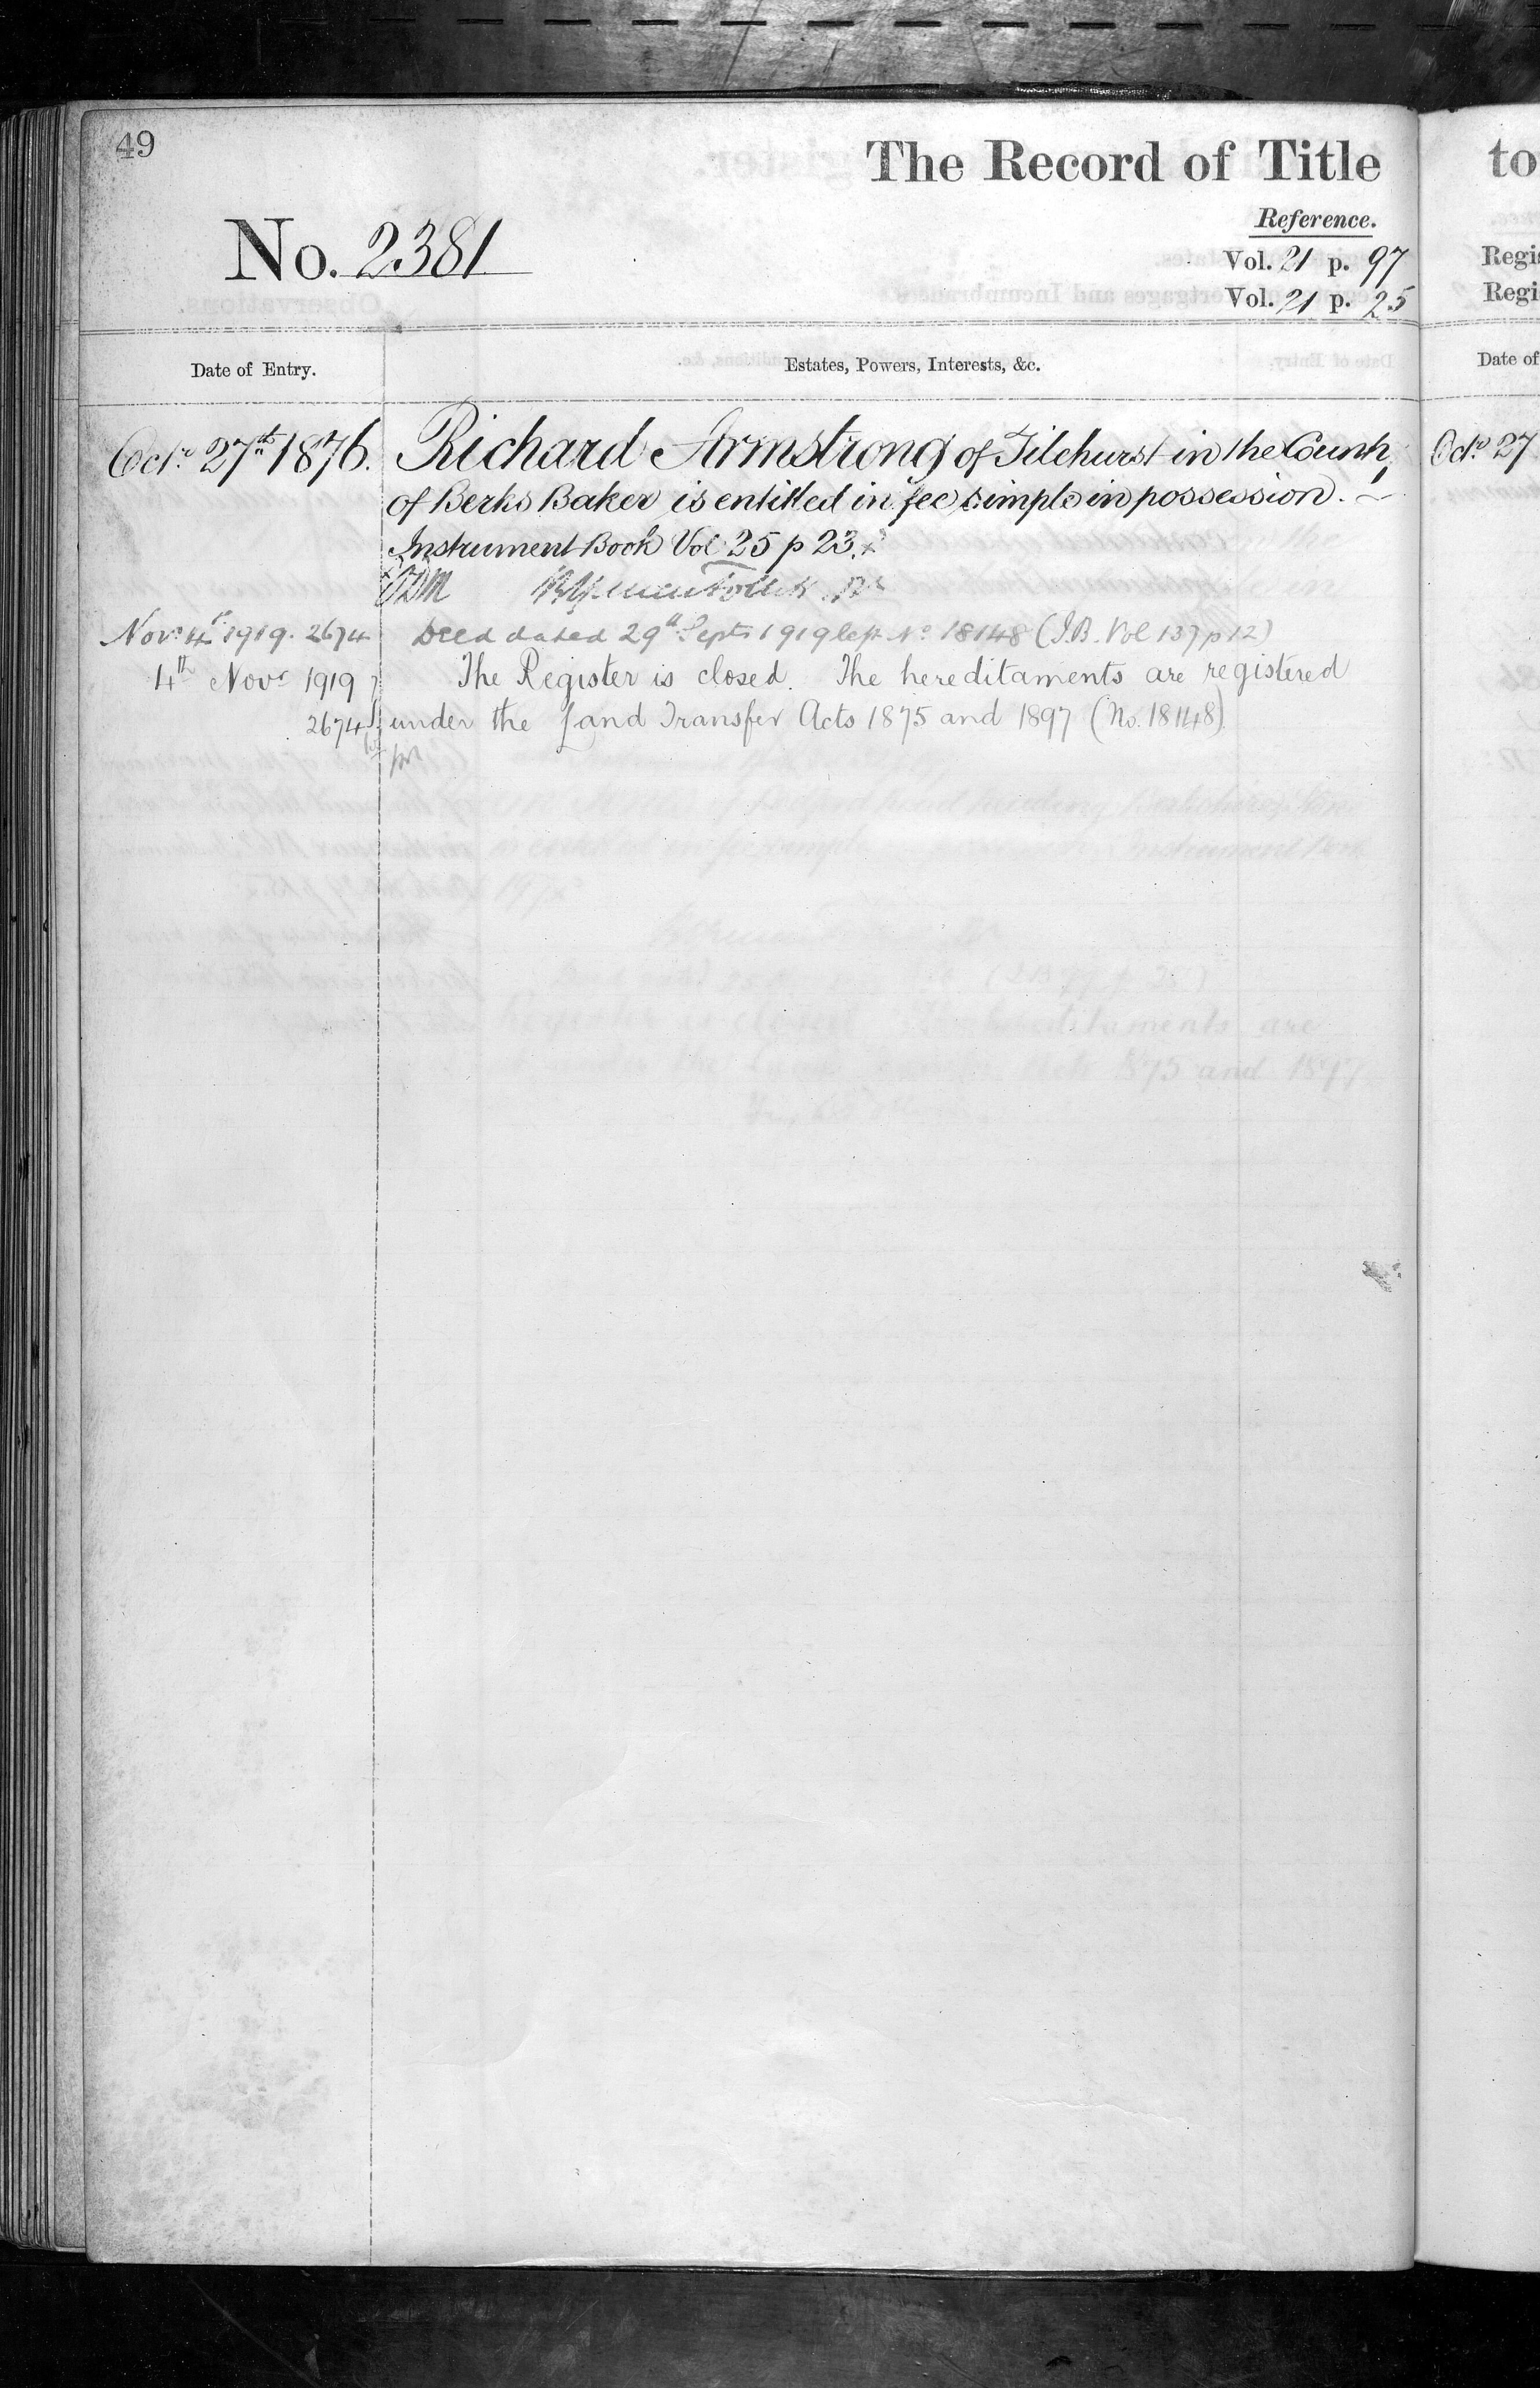 49
The Record of Title
to
Reference.
No. 2381
Vol. 21 p. 97
Regi
Vol. 21 p. 25
Regi
Date of Entry.
Estates, Powers, Interests, &c.
Date of
Octr. 27th 1876.
Richard Armstrong of Tilehurst in the County
Octr. 27
of Berks Baker is entitled in fee simple in possession.
Instrument Book Vol 25 p 23.
Novr. 4th 1919. 2674
Deed dated 29th Septr 1919 No. 18148 (I.B. Vol 137 p 12)
4th Novr 1919
The Register is closed. The hereditaments are registered
2674
under the Land Transfer Acts 1875 and 1897 (No. 18148).